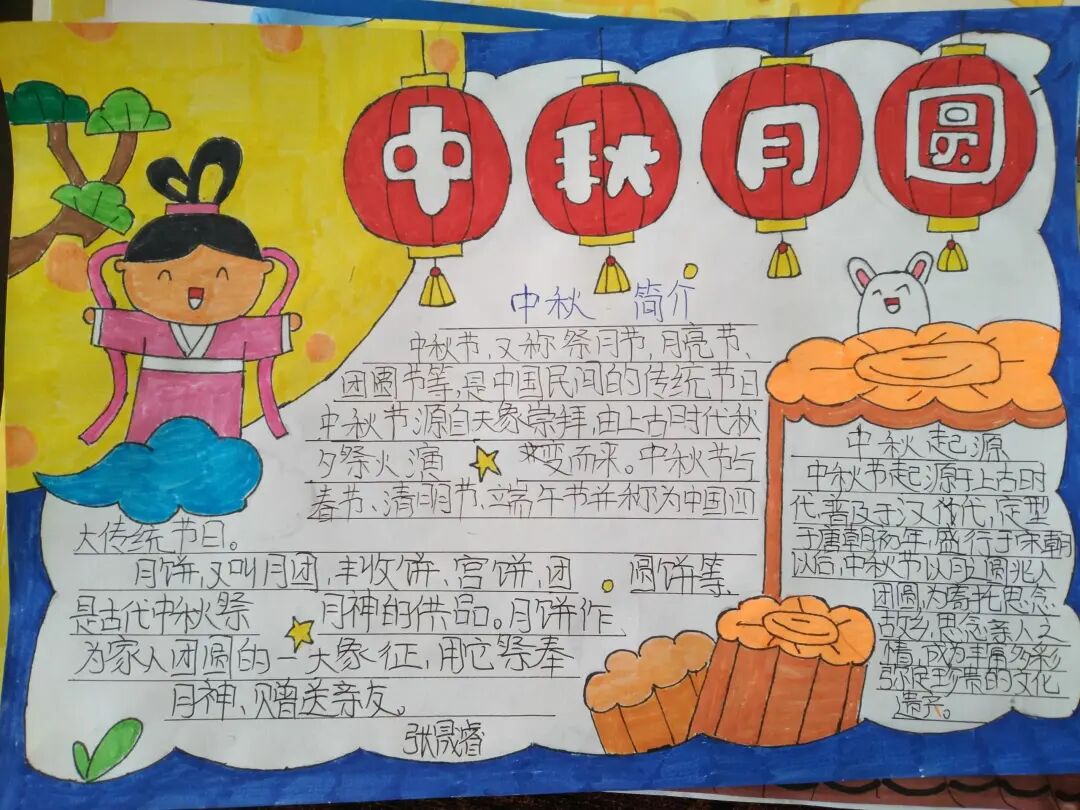 中秋月圆
中秋 简介
中秋节,又称祭月节,月亮节、
团圆节等,是中国民间的传统节日
中秋节源自天象崇拜,由上古时代秋
夕祭火演变而来。中秋节与
春节、清明节、端午节并称为中国四
大传统节日。
月饼,又叫月团,丰收饼、宫饼,团圆饼等,
是古代中秋祭月神的供品。月饼作
为家人团圆的一大象征,用它祭奉
月神、赠送亲友。
张晟睿
中秋起源
中秋节起源于上古时
代,普及于汉时代,定型
于唐朝初年,盛行于宋朝
以后,中秋节以月之圆兆人
团圆,为寄托思念
故乡,思念亲人之
情,成为丰富多彩
弥足珍贵的文化
遗产。